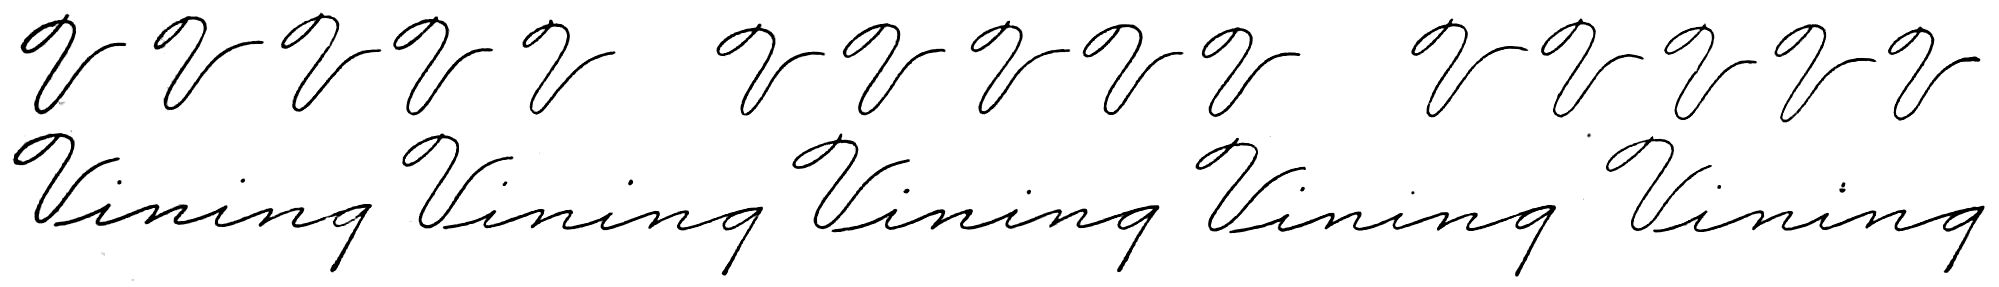 V V V V V V V V V V V V V V V
Vining Vining Vining Vining Vining